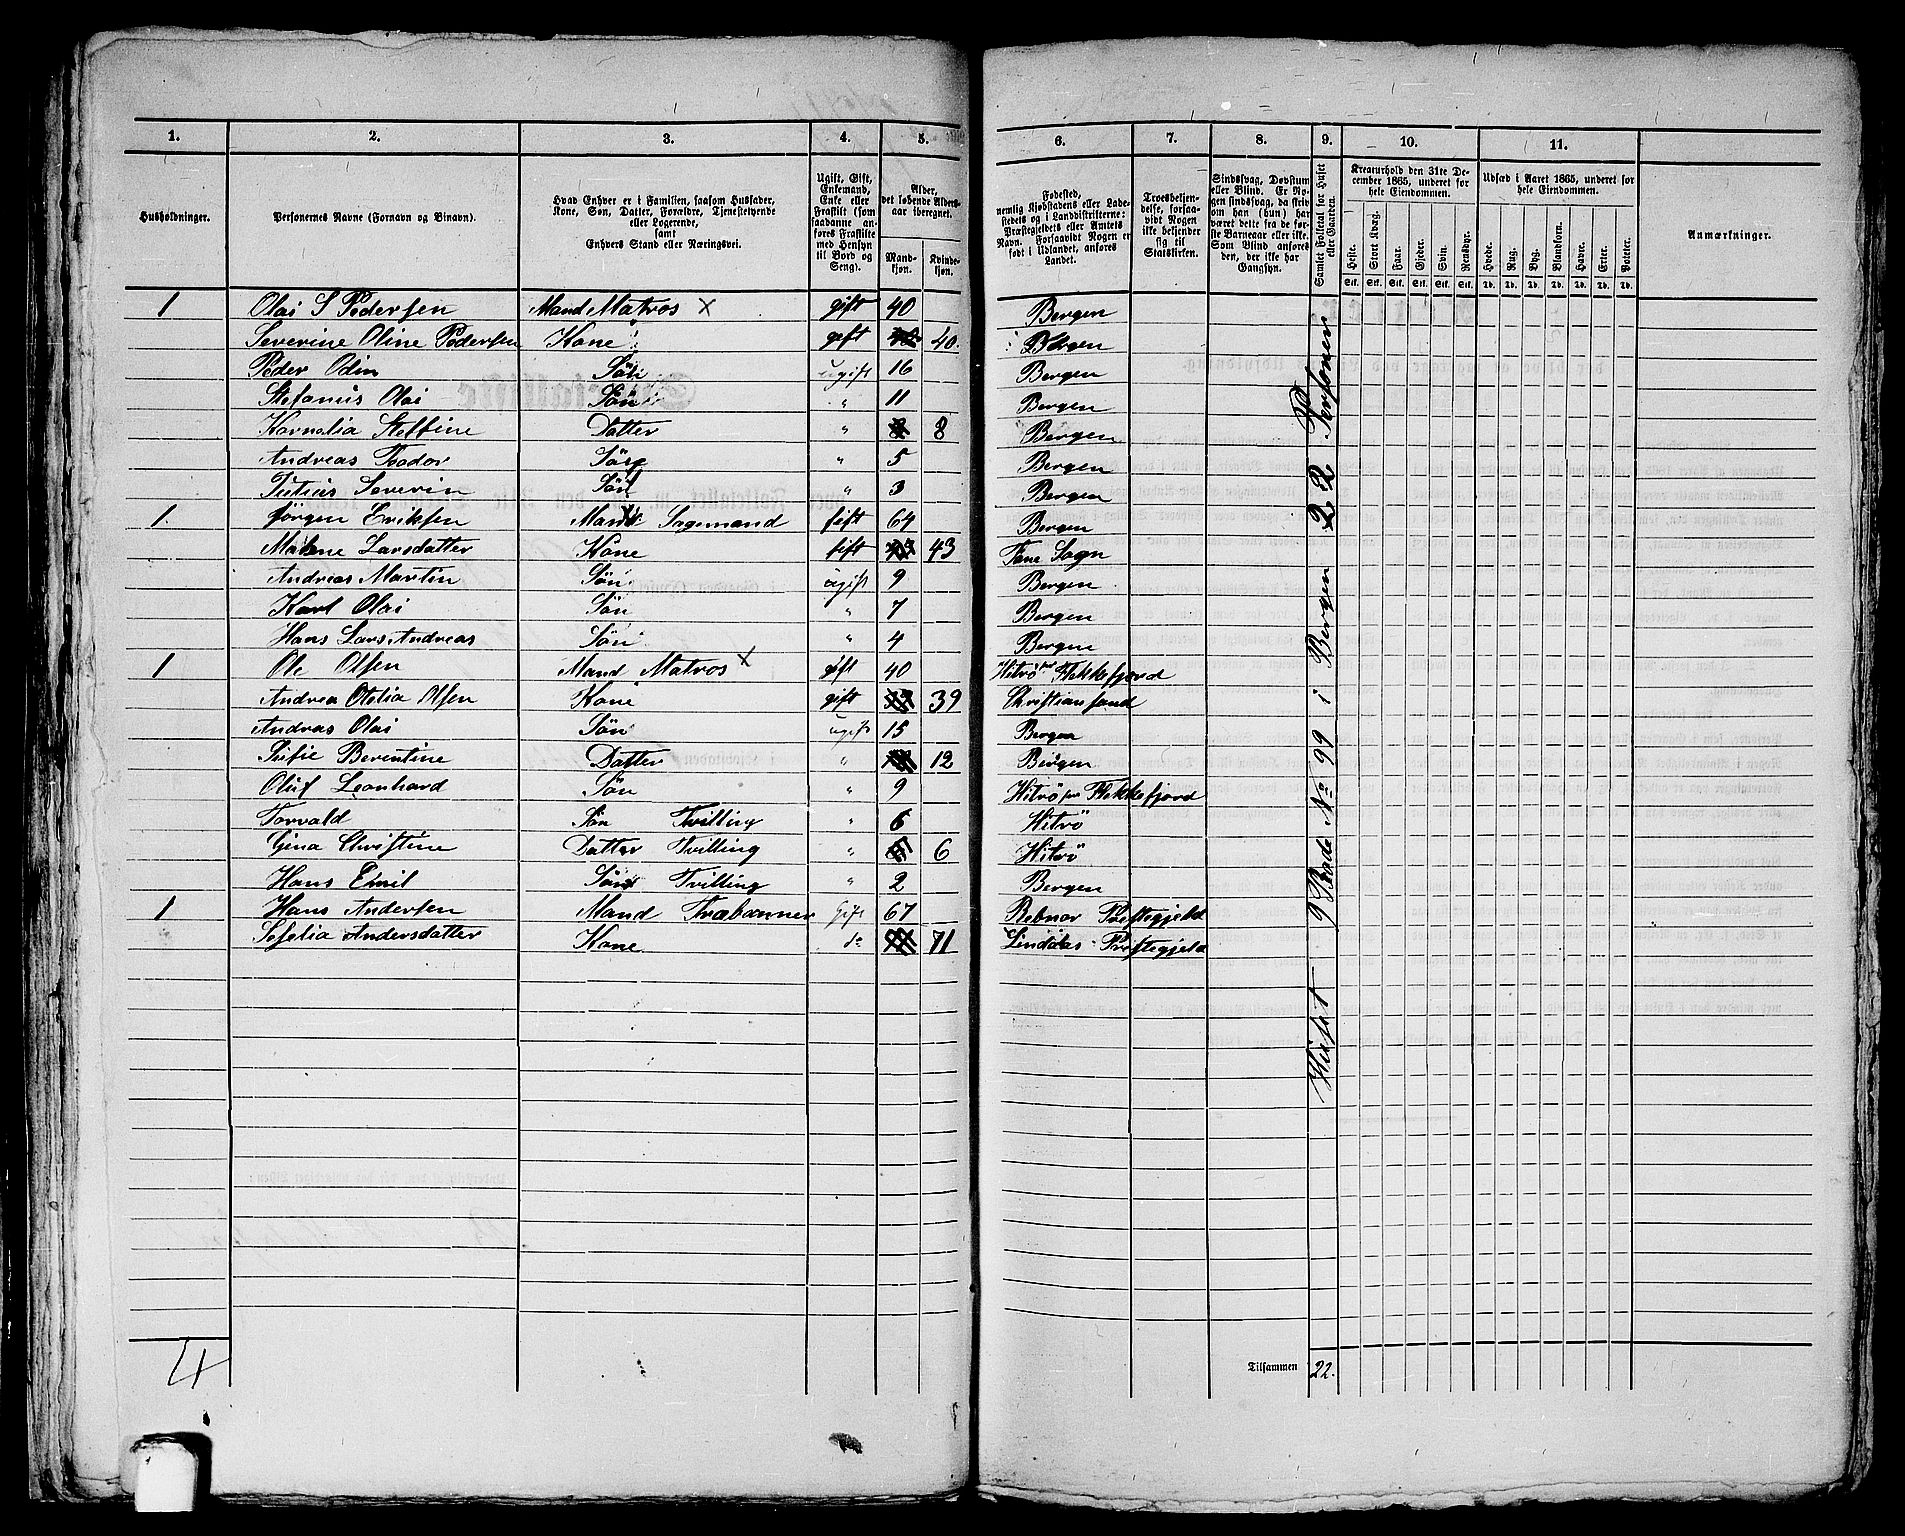 1. 2. 3. 4. 5. 6. 7. 8. 9. 10. 11.
Husholdninger.
Personernes Navne (Fornavn og Binavn).
Hvad Enhver er i Familien, saasom Husfader,
Kone, Søn, Datter, Forældre, Tjenestetyende
eller Logerende,
samt
Enhvers Stand eller Næringsvei.
Ugift, Gift,
Enkemand,
Enke eller
Fraskilt (som
saadanne an-
føres Fraskilte
med Hensyn
til Bord og
Seng).
Alder,
det løbende Alders-
aar iberegnet.
Mand-
kjøn.
Kvinde-
kjøn.
Fødested,
nemlig Kjøbstadens eller Lade-
stedets og i Landdistrikterne:
Præstegjeldets eller Amtets
Navn. Forsaavidt Nogen er
født i Udlandet, anføres
Landet.
Troesbekjen-
delse, forsaa-
vidt Nogen
ikke bekjender
sig til
Statskirken.
Sindssvag, Døvstum
eller Blind. Er No-
gen sindssvag, da skriv
om han (hun) har
været dette fra de før-
ste Barneaar eller ikke.
Som Blind anføres
den, der ikke har
Gangsyn.
Samlet Folketal for Huset
eller Gaarden.
Kreaturhold den 31te De-
cember 1865, underet for
hele Eiendommen.
Heste. Stort Kvæg. Faar. Gjeder. Svin. Rensdyr.
Stk. Stk. Stk. Stk. Stk. Stk.
Udsæd i Aaret 1865, underet for
hele Eiendommen.
Hvede. Rug. Byg. Blandkorn. Havre. Erter. Poteter.
Td. Td. Td. Td. Td. Td. Td.
Anmærkninger.
1 Olai S Pedersen Mand Matros x gift 40 Bergen
Severine Oline Pedersen Kone gift 40. Bergen
Peder Odin Sön ugift 16 Bergen
Stefanus Olai Sön " 11 Bergen
Kornelia Steffine Datter " 8 Bergen
Andreas Teodor Sön " 5 Bergen
Julius Severin Sön " 3 Bergen
1. Jörgen Eriksen Mand Sagemand gift 64 Bergen
Malene Larsdatter Kone gift 43 Fane Sogn
Andreas Martin Sön ugift 9 Bergen
Karl Olai Sön " 7 Bergen
Hans Lars Andreas Sön " 4 Bergen
1 Ole Olsen Mand Matros x gift 40 Hitrö Flekkefjord
Andrea Otelia Olsen Kone gift 39 Christiansand
Andras Olai Sön ugift 15 Bergen
Sufie Berentine Datter " 12 Bergen
Oluf Leonhard Sön " 9 Hitrö Flekkefjord
Torvald Sön Tvilling " 6 Hitrö
Gina Christine Datter Tvilling " 6 Hitrö
Hans Emil Sön Tvilling " 2 Bergen
1 Hans Andersen Mand Gift 67 Prestegjeld
Andersdatter Kone do 71 Lindaas Prestegjeld
Huset 9 Rode No 99 i Bergen 22 Personer
4
Tilsammen 22.